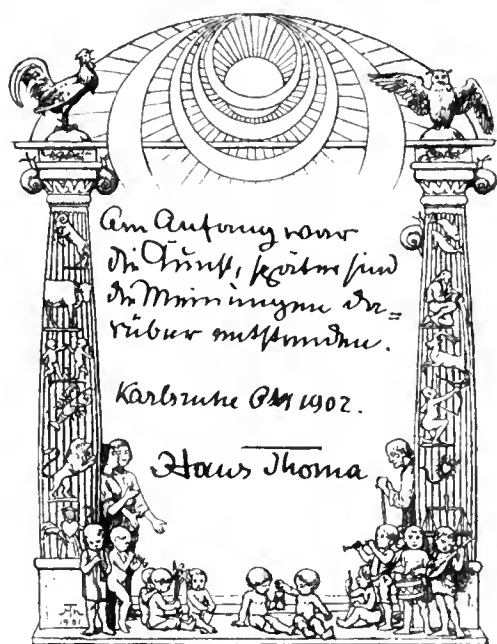 Am Anfang war
die Kunst, später sind
die Meinungen da=
rüber entstanden.
Karlsruhe 1902.
Hans Thoma
HTh
1901